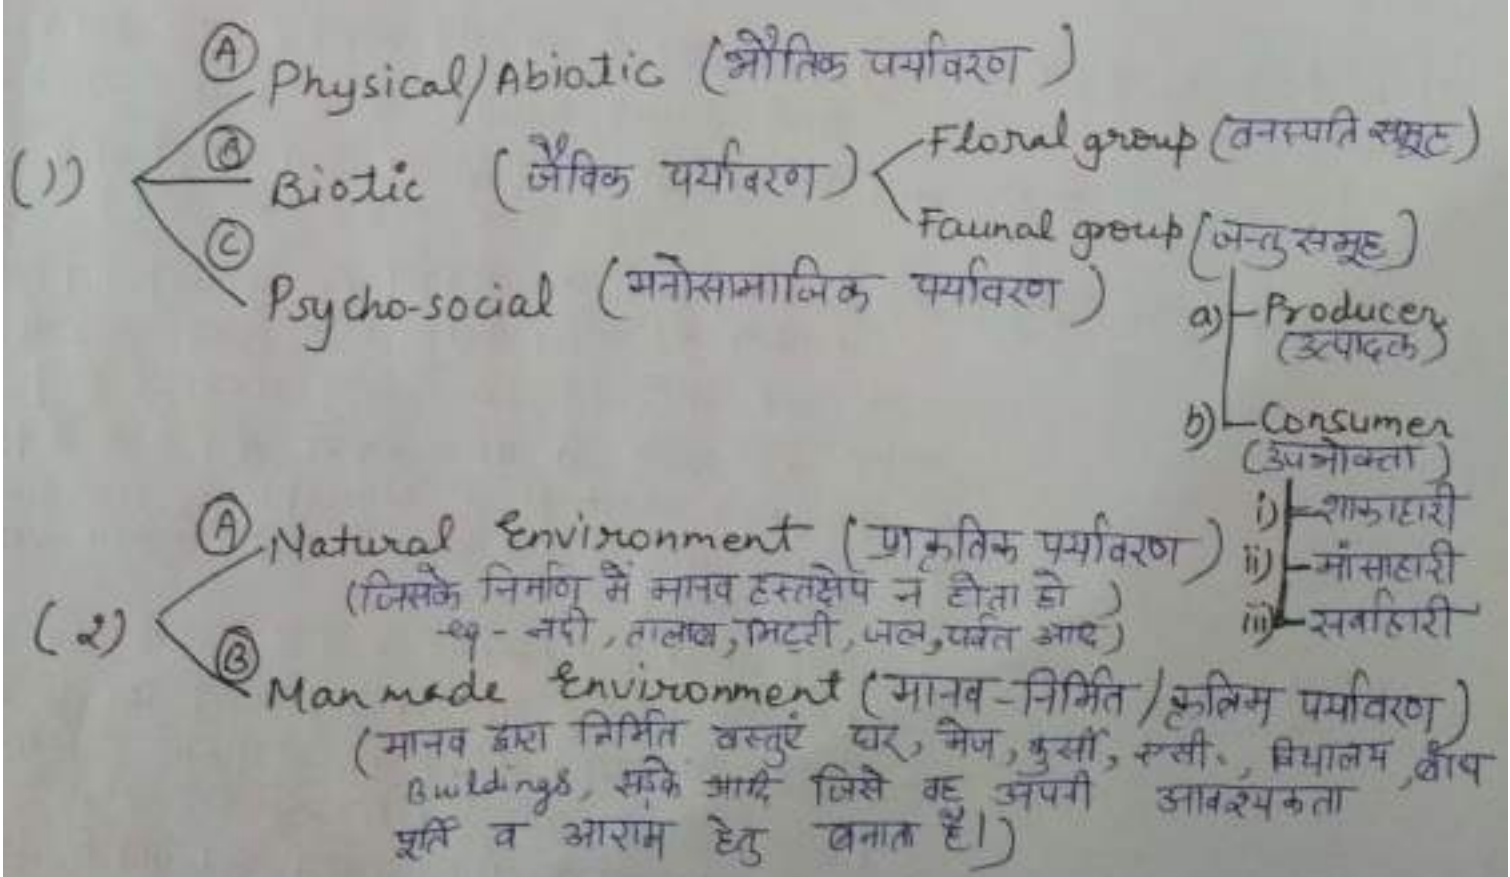 (A) Physical/Abiotic (भौतिक पर्यावरण)
(1)
(B) Biotic (जैविक पर्यावरण)
Floral group (वनस्पति समूह)
Faunal group (जन्तु समूह)
a) Producer
(उत्पादक)
b) Consumer
(उपभोक्ता)
i) शाकाहारी
ii) मांसाहारी
iii) सर्वाहारी
(C) Psycho-social (मनोसामाजिक पर्यावरण)
(2)
(A) Natural Environment (प्राकृतिक पर्यावरण)
(जिसके निर्माण में मानव हस्तक्षेप न होता हो)
eg - नदी, तालाब, मिट्टी, जल, पर्वत आदि)
(B) Man made Environment (मानव-निर्मित/कृत्रिम पर्यावरण)
(मानव द्वारा निर्मित वस्तुएं घर, मेज, कुर्सी, विद्यालय, बाँध
Buildings, सड़कें आदि जिसे वह अपनी आवश्यकता
पूर्ति व आराम हेतु बनाता है।)